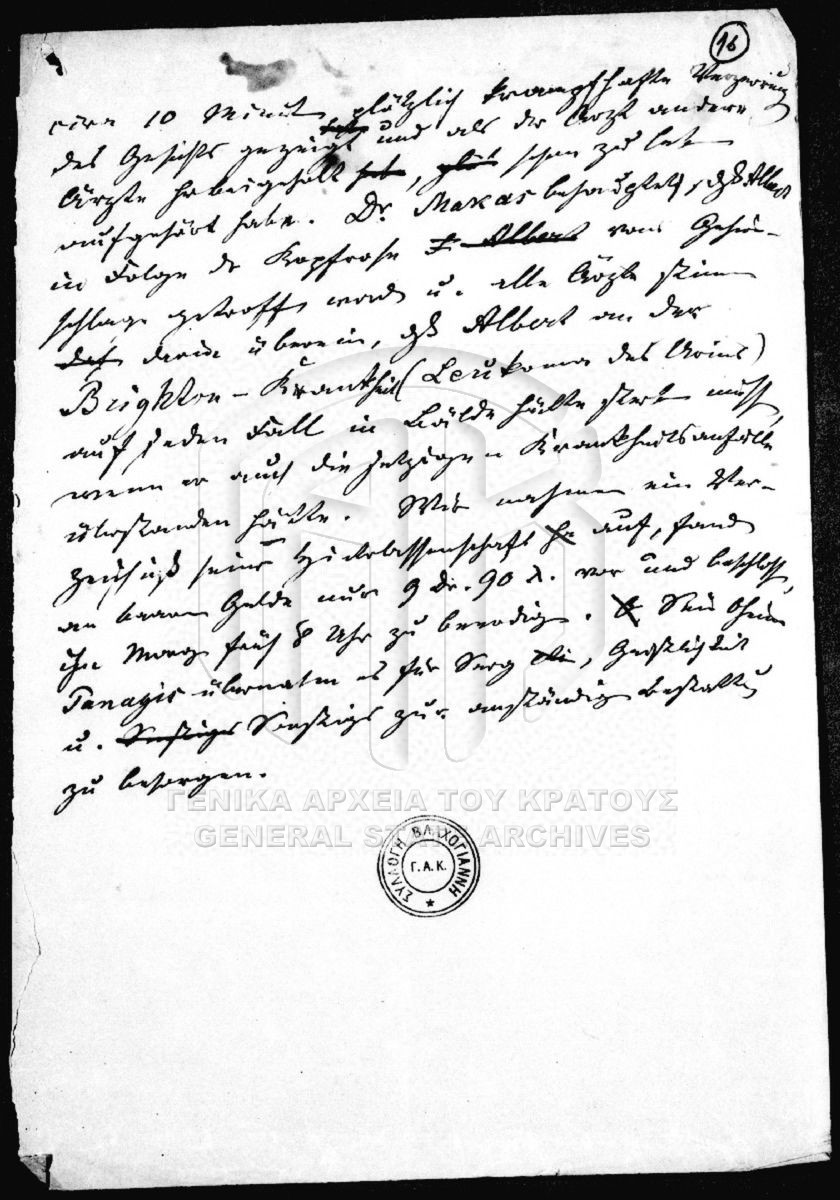 16
circa 10 Minut plötzlich krampfhafte Verzerrung
des Gesichts gezeigt und als der Arzt andere
Ärzte herbeigeholt, schon zu leben
aufgehört habe. Dr. Makas behauptet, dß Albert
in Folge der Kopfrose Albert vom Gehirn-
schlage getroffen worden u. alle Ärzte stimmen
darin überein, dß Albert an der
Brighton-Krankheit (Leukoma des Urins)
auf jeden Fall in Bälde hätte sterben müssen,
wenn er auch die jetzigen Krankheitsanfälle
überstanden hätte. Wir nahmen ein Ver-
zeichniß seiner Hinterlassenschaft auf, fanden
an baarem Gelde nur 9 Dr. 90 λ. vor und beschlossen,
ihn Morgen früh 8 Uhr zu beerdigen. Sein Oheim
Panagis übernahm es für Sarg, Geistlichkeit
u. Sonstige Sonstiges zur anständigen Bestattung
zu besorgen.
ΓΕΝΙΚΑ ΑΡΧΕΙΑ ΤΟΥ ΚΡΑΤΟΥΣ
GENERAL STATE ARCHIVES
ΣΥΛΛΟΓΗ ΒΛΑΧΟΓΙΑΝΝΗ
Γ.Α.Κ.